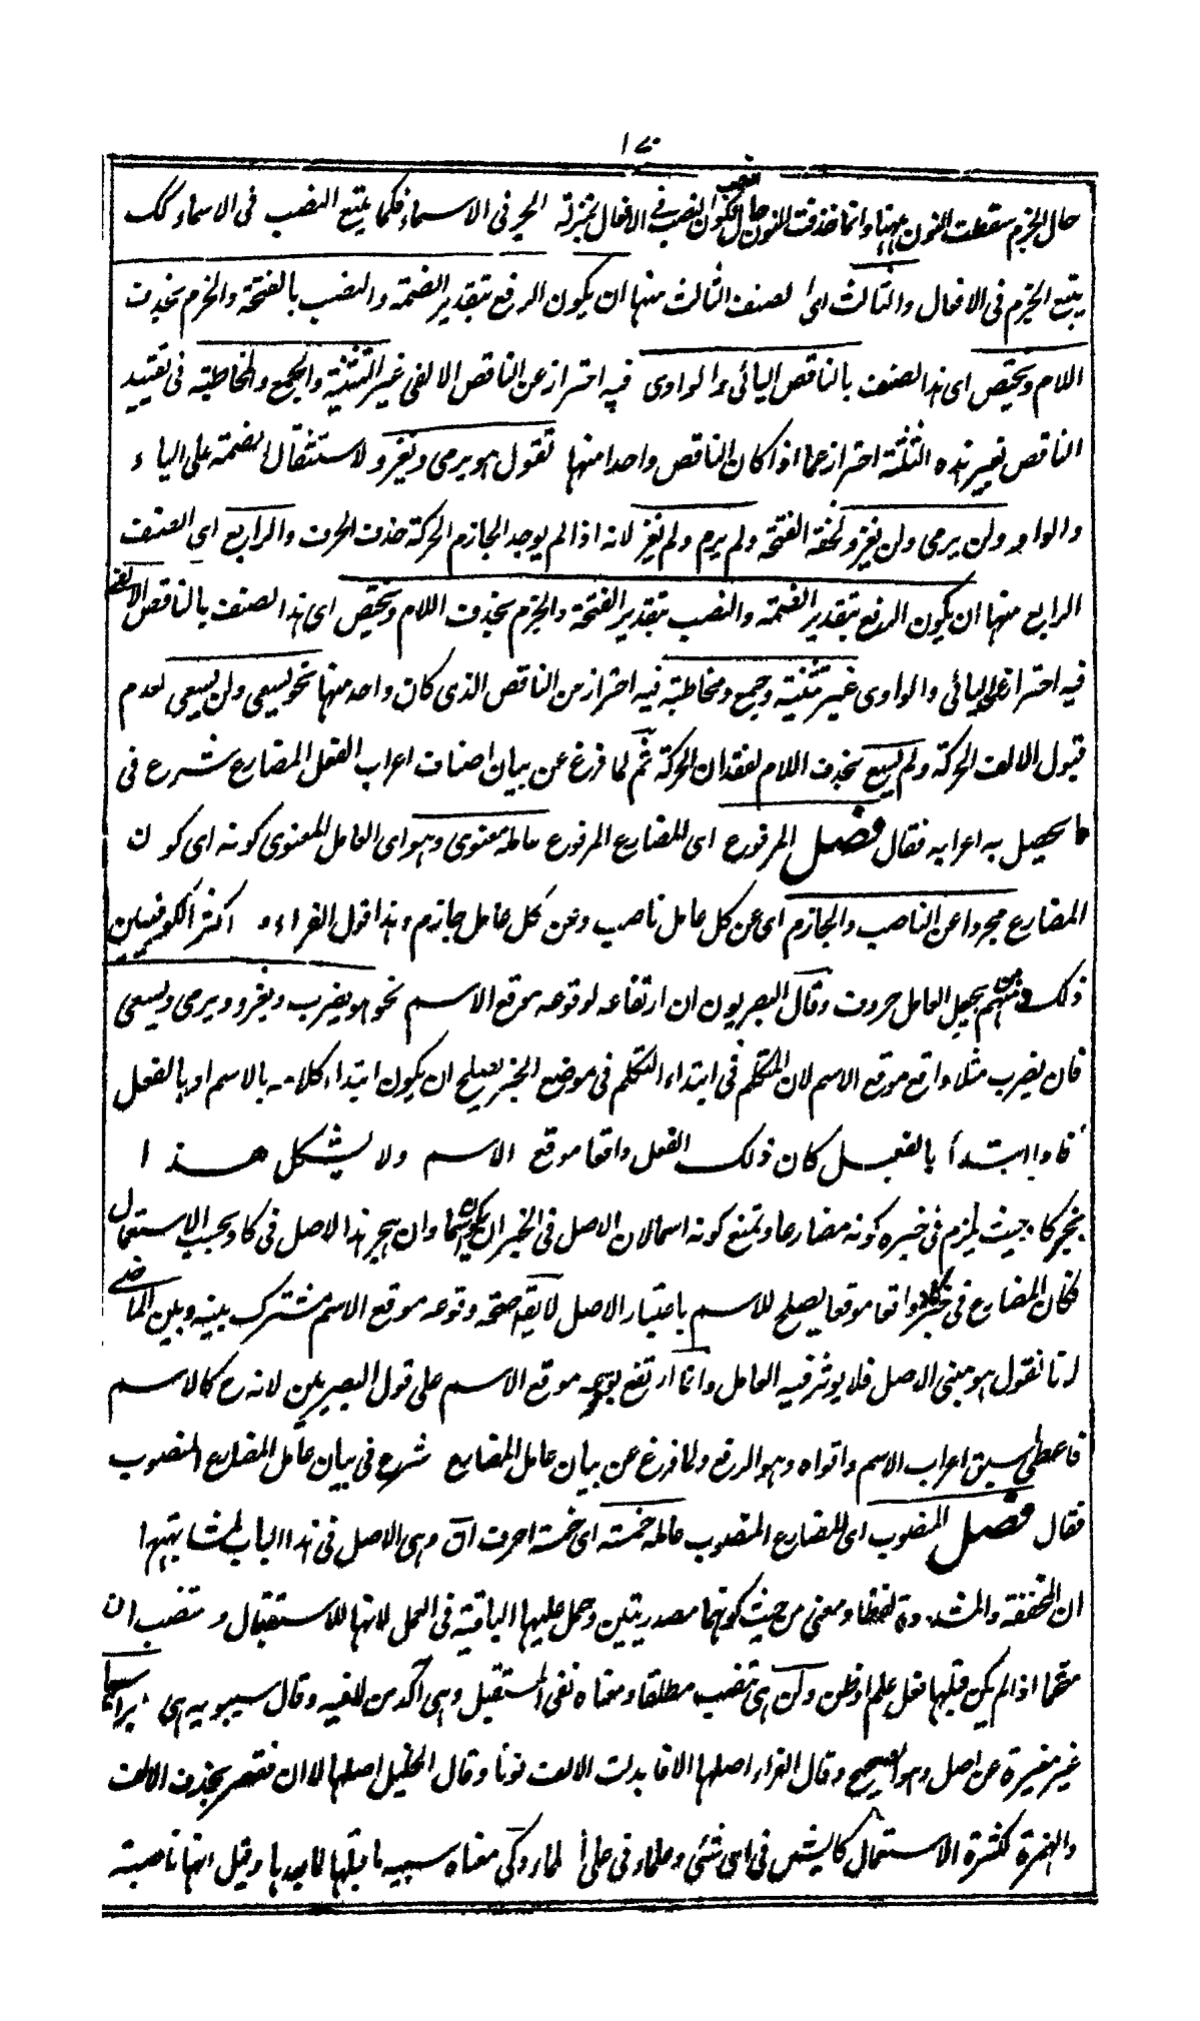 ١٧٠
حال الجزم سقطت النون ههنا وانما حذفت النون حال النصب لكون النصب فى الافعال بمنزلة الجر فى الاسماء فكما يتبع النصب فى الاسماء كك
يتبع الجزم فى الافعال والثالث اى الصنف الثالث منها ان يكون الرفع بتقدير الضمة والنصب بالفتحة والجزم بحذف
اللام ويختص اى هذا الصنف بالناقص اليائى والواوى فيه احتراز عن الناقص الالفى غير التثنية والجمع والمخاطبة فى تقييد
الناقص بغير هذه الثلثة احتراز عما اذا كان الناقص واحدا منها تقول هو يرمى ويغزو لاستثقال الضمة على الياء
والواو ولن يرمى ولن يغزو لخفة الفتحة ولم يرم ولم يغز لانه اذا لم يوجد الجازم الحركة حذف الحرف والرابع اى الصنف
الرابع منها ان يكون الرفع بتقدير الضمة والنصب بتقدير الفتحة والجزم بحذف اللام ويختص اى هذا الصنف بالناقص الالفى
فيه احتراز عن اليائى والواوى غير تثنية وجمع ومخاطبة فيه احتراز من الناقص الذى كان واحد منها نحو يسعى ولن يسعى لعدم
قبول الالف الحركة ولم يسع بحذف اللام لفقدان الحركة ثم لما فرغ عن بيان اصناف اعراب الفعل المضارع شرع فى
ما يحصل به اعرابه فقال فصل المرفوع اى المضارع المرفوع عامله معنوى وهو اى العامل المعنوى كونه اى كون
المضارع مجردا عن الناصب والجازم اى عن كل عامل ناصب وعن كل عامل جازم وهذا قول الفراء و اكثر الكوفيين
ذلك ومنهم من يجعل العامل حروف وقال البصريون ان ارتفاعه لوقوعه موقع الاسم نحو هو يضرب ويغزو ويرمى ويسعى
فان يضرب مثلا واقع موقع الاسم لان المتكلم فى ابتداء التكلم فى موضع الخبر يصلح ان يكون ابتداء كلامه بالاسم او بالفعل
فاذا ابتدأ بالفعل كان ذلك الفعل واقعا موقع الاسم ولا يشكل هذا
بخبر كاد حيث يلزم فى خبره كونه مضارعا ويمتنع كونه اسما لان الاصل فى الخبر ان يكون اسما وان هجر هذا الاصل فى كاد بحسب الاستعمال
فكان المضارع فى خبر كاد واقعا موقعا يصلح للاسم باعتبار الاصل لا يقم صحة وقوعه موقع الاسم مشترك بينه وبين الماضى
لانا نقول هو مبنى الاصل فلا يوثر فيه العامل وانما ارتفع بوقوعه موقع الاسم على قول البصريين لانه ح كالاسم
فاعطى سبق اعراب الاسم واقواه وهو الرفع ولما فرغ عن بيان عامل المضارع شرع فى بيان عامل المضارع المنصوب
فقال فصل المنصوب اى المضارع المنصوب عامله خمسة اى خمسة احرف ان وهى الاصل فى هذا الباب لمشابهتها
ان المخففة والمشددة لفظا ومعنى من حيث كونهما مصدريتين وحمل عليها الباقية فى العمل لانها للاستقبال و تنصب ان
حتما اذا لم يكن قبلها فعل علم او ظن ولن هى تنصب مطلقا ومعناه نفى المستقبل وهى آكد من لنفيه وقال سيبويه هى براسها
غير مغيرة عن اصل وهو الصحيح وقال الفراء اصلها لا فابدلت الالف نونا وقال الخليل اصلها لا ان فقصر بحذف الالف
والهمزة لكثرة الاستعمال كايش فى اى شئ وعلماء فى على الماء وكى معناه سببية ما قبلها لما بعدها وقيل انها ناصبة